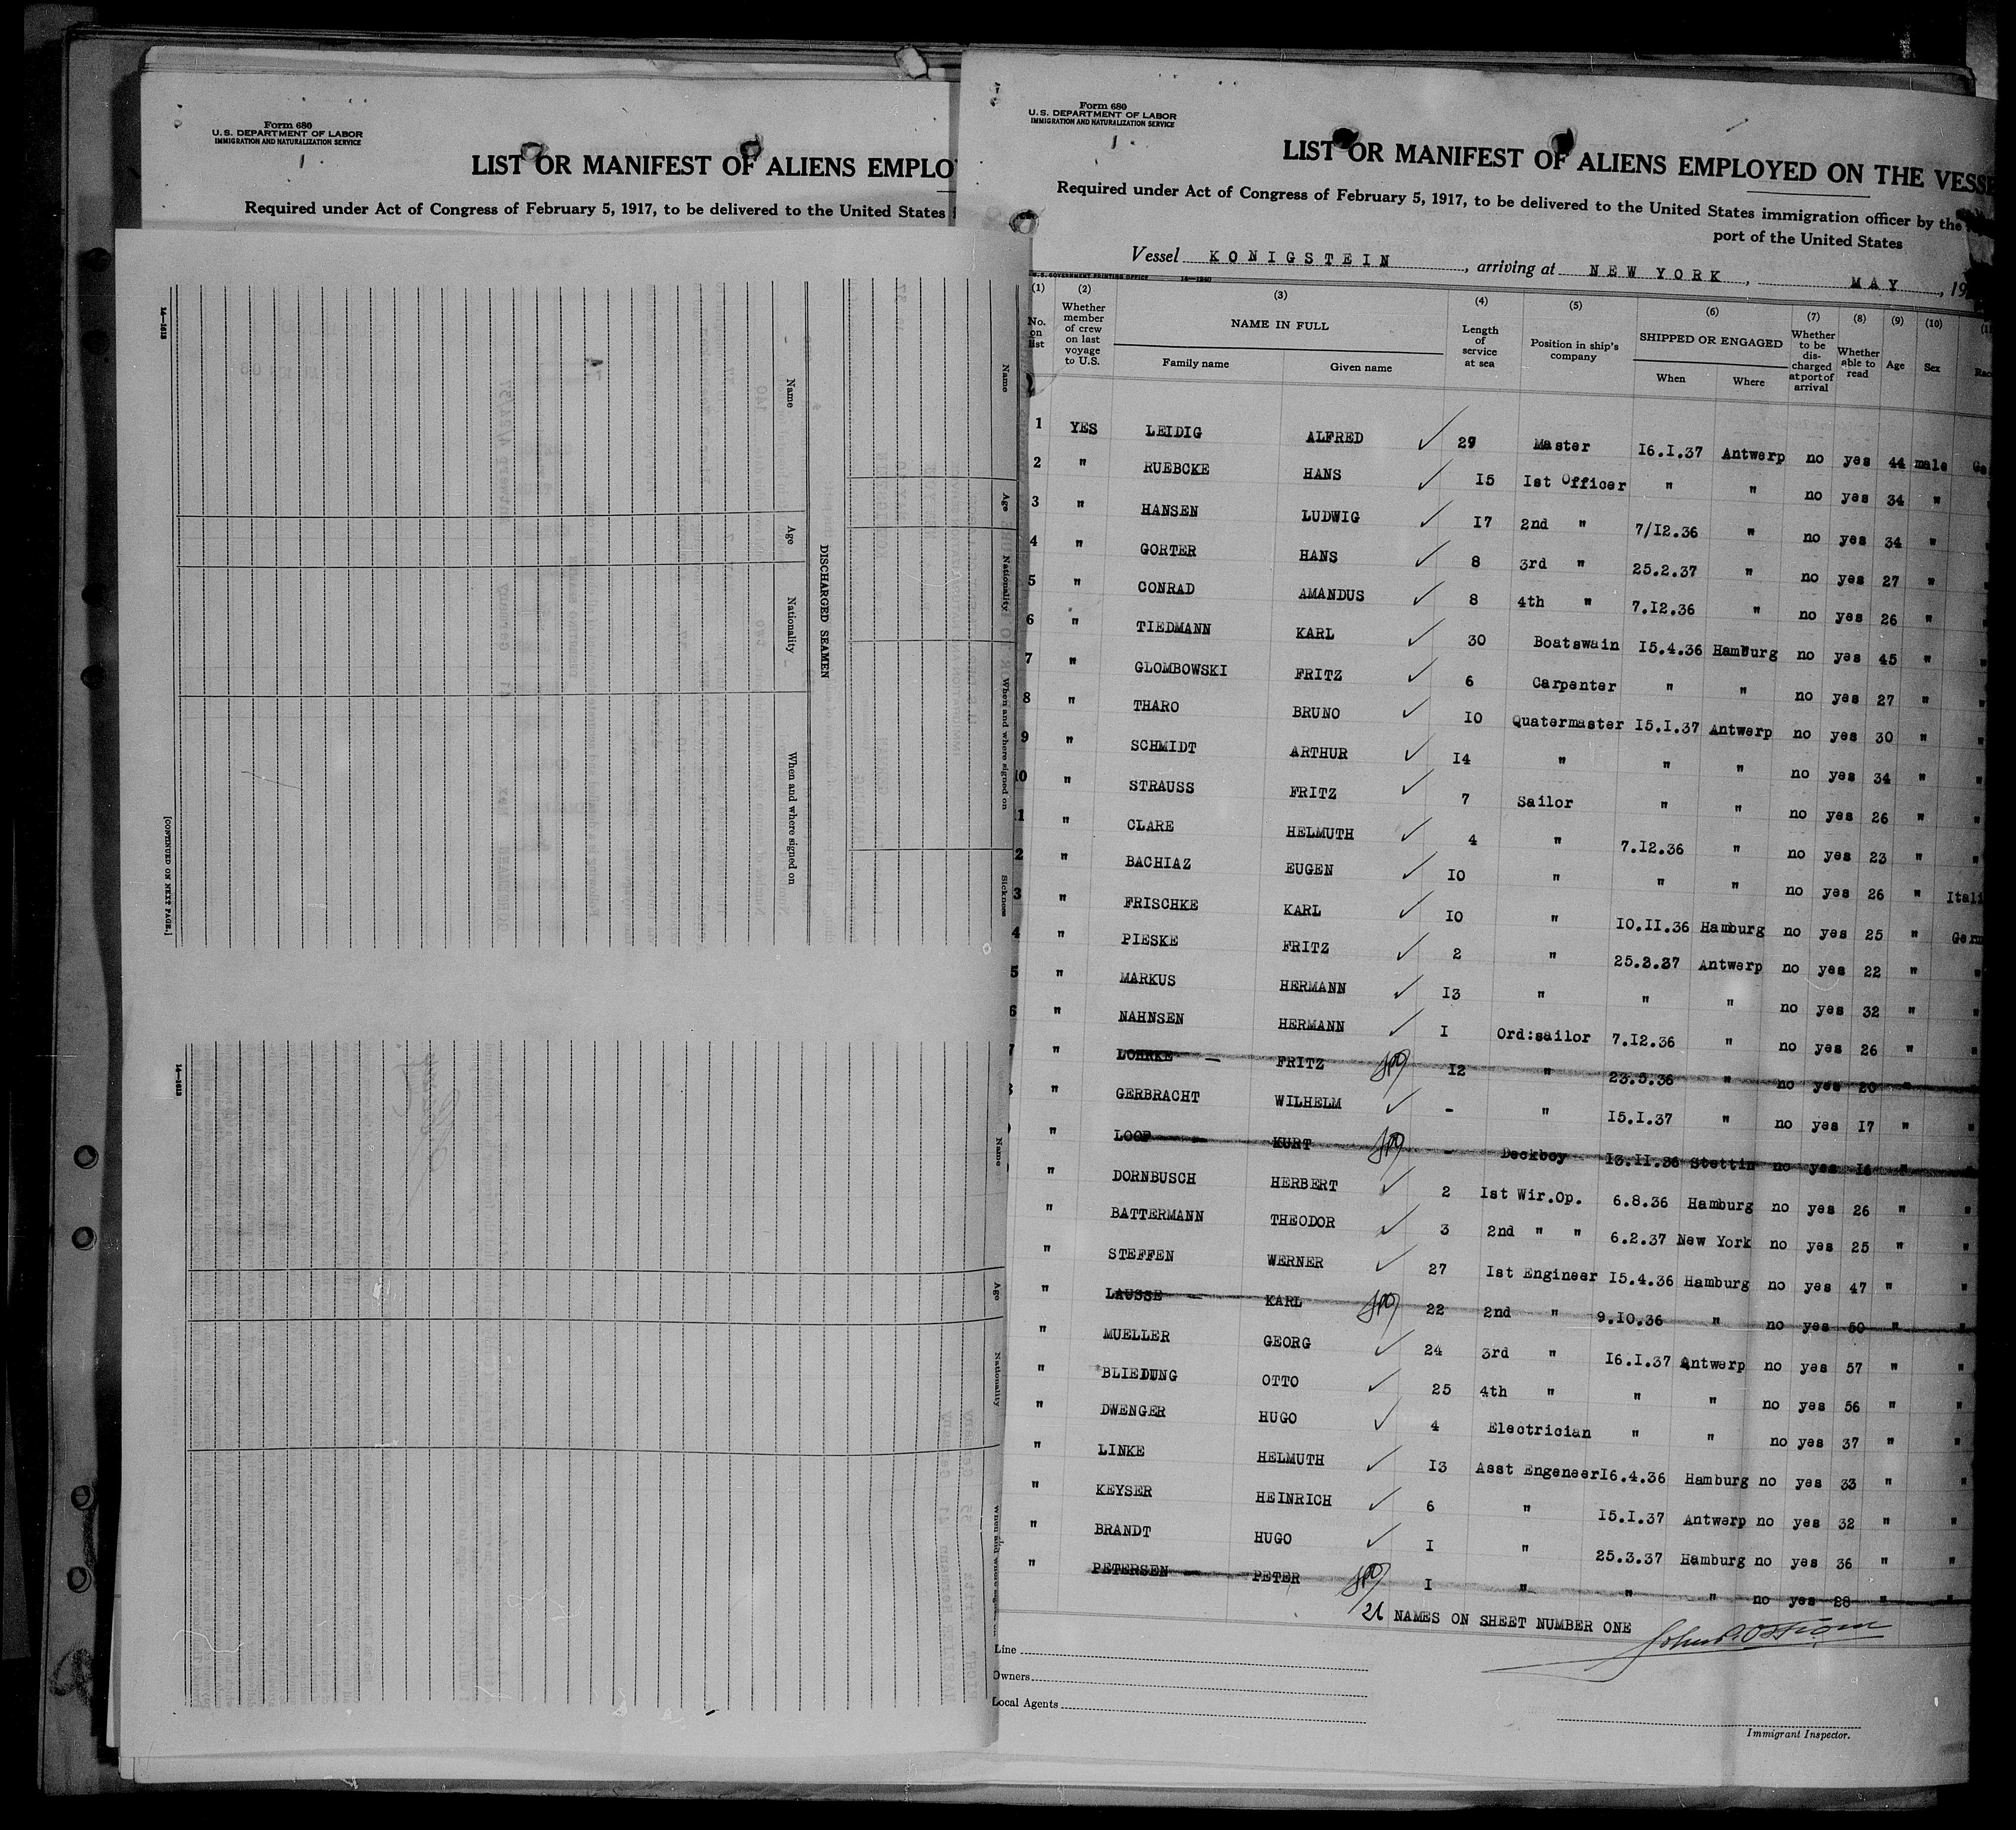 Form 680
U. S. DEPARTMENT OF LABOR
IMMIGRATION AND NATURALIZATION SERVICE
1
LIST OR MANIFEST OF ALIENS EMPLO
Required under Act of Congress of February 5, 1917, to be delivered to the United States
14—1613
Name
Age
Nationality
When and where signed on
Sickness
DISCHARGED SEAMEN
Name
Age
Nationality
When and where signed on
[CONTINUED ON NEXT PAGE.]
14—1613
Name
Age
Nationality
When and where signed on
Form 680
U. S. DEPARTMENT OF LABOR
IMMIGRATION AND NATURALIZATION SERVICE
1
LIST OR MANIFEST OF ALIENS EMPLOYED ON THE VESSE
Required under Act of Congress of February 5, 1917, to be delivered to the United States immigration officer by the
port of the United States
Vessel KONIGSTEIN, arriving at NEW YORK, MAY, 19
U. S. GOVERNMENT PRINTING OFFICE 14—1240
(1) (2) (3) (4) (5) (6) (7) (8) (9) (10)
No. on list Whether member of crew on last voyage to U.S. NAME IN FULL Length of service at sea Position in ship's company SHIPPED OR ENGAGED Whether to be discharged at port of arrival Whether able to read Age Sex Rac
Family name Given name When Where
1 YES LEIDIG ALFRED ✓ 29 Master 16.I.37 Antwerp no yes 44 male Ge
2 " RUEBCKE HANS ✓ I5 Ist Officer " " no yes 34 "
3 " HANSEN LUDWIG ✓ I7 2nd " 7/I2.36 " no yes 34 " "
4 " GORTER HANS ✓ 8 3rd " 25.2.37 " no yes 27 " "
5 " CONRAD AMANDUS ✓ 8 4th " 7.I2.36 " no yes 26 " "
6 " TIEDMANN KARL ✓ 30 Boatswain I5.4.36 Hamburg no yes 45 " "
7 " GLOMBOWSKI FRITZ ✓ 6 Carpenter " " no yes 27 " "
8 " THARO BRUNO ✓ IO Quatermaster I5.I.37 Antwerp no yes 30 " "
9 " SCHMIDT ARTHUR ✓ I4 " " " no yes 34 " "
10 " STRAUSS FRITZ ✓ 7 Sailor " " no yes 26 " "
1 " CLARE HELMUTH ✓ 4 " 7.I2.36 " no yes 23 " "
2 " BACHIAZ EUGEN ✓ IO " " " no yes 26 " Itali
3 " FRISCHKE KARL ✓ IO " IO.II.36 Hamburg no yes 25 " Germ
4 " PIESKE FRITZ ✓ 2 " 25.2.37 Antwerp no yes 22 " "
5 " MARKUS HERMANN ✓ I3 " " " no yes 32 " "
6 " NAHNSEN HERMANN ✓ I Ord:sailor 7.I2.36 " no yes 26 " "
7 " LOHRKE FRITZ I2 " 23.5.36 " no yes 20 "
" GERBRACHT WILHELM ✓ - " I5.I.37 " no yes I7 " "
" LOOF KURT - Deckboy I3.II.36 Stettin no yes I6 " "
" DORNBUSCH HERBERT ✓ 2 Ist Wir.Op. 6.8.36 Hamburg no yes 26 " "
" BATTERMANN THEODOR ✓ 3 2nd " " 6.2.37 New York no yes 25 " "
" STEFFEN WERNER ✓ 27 Ist Engineer I5.4.36 Hamburg no yes 47 " "
" LAUSSE KARL 22 2nd " 9.IO.36 " no yes 50 " "
" MUELLER GEORG ✓ 24 3rd " I6.I.37 Antwerp no yes 57 " "
" BLIEDUNG OTTO ✓ 25 4th " " " no yes 56 " "
" DWENGER HUGO ✓ 4 Electrician " " no yes 37 " "
" LINKE HELMUTH ✓ I3 Asst Engeneer I6.4.36 Hamburg no yes 33 " "
" KEYSER HEINRICH ✓ 6 " I5.I.37 Antwerp no yes 32 " "
" BRANDT HUGO ✓ I " 25.3.37 Hamburg no yes 36 " "
" PETERSEN PETER I " " " no yes 28 " "
26 NAMES ON SHEET NUMBER ONE
Line
Owners
Local Agents
Immigrant Inspector.